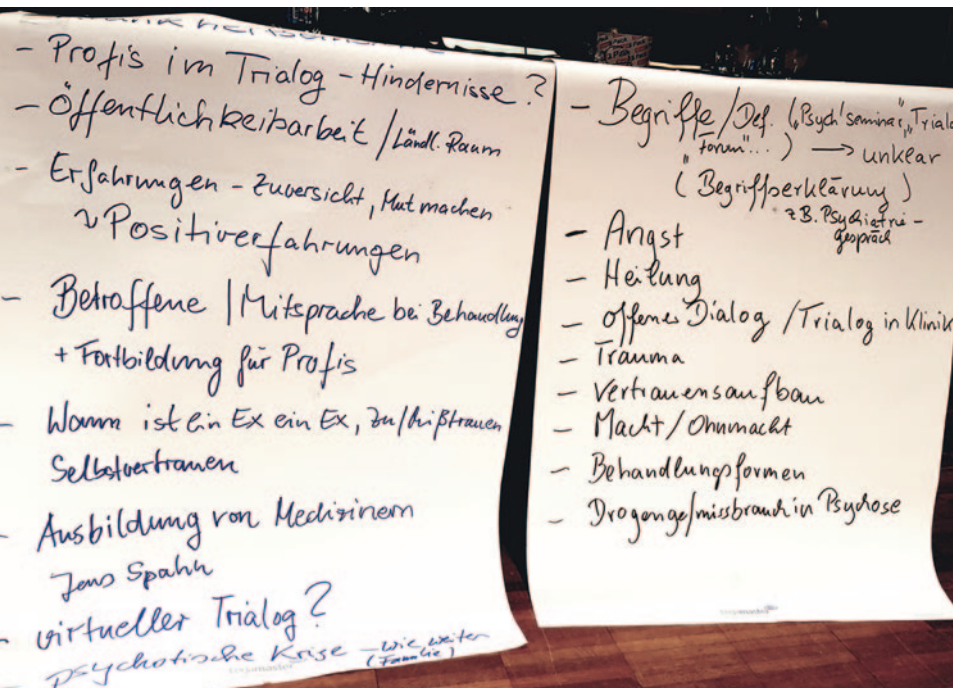 - Profis im Trialog - Hindernisse?
- Öffentlichkeibarbeit / Ländl. Raum
- Erfahrungen - Zuversicht, Mut machen
~ Positiverfahrungen
- Betroffene / Mitsprache bei Behandlung
+ Fortbildung für Profis
- Wann ist ein Ex ein Ex, Zu/Mißtrauen
Selbstvertrauen
- Ausbildung von Medizinern
Jens Spahn
- virtueller Trialog?
psychotische Krise - wie weiter
(Familie)
- Begriffe/Def. („Psych'seminar", „Trialog
"Forum"...) → unklar
(Begriffserklärung)
z.B. Psychiatrie-
gespräch
- Angst
- Heilung
- offener Dialog / Trialog in Klinik
- Trauma
- Vertrauensaufbau
- Macht/Ohnmacht
- Behandlungsformen
- Drogenge/missbrauch in Psychose